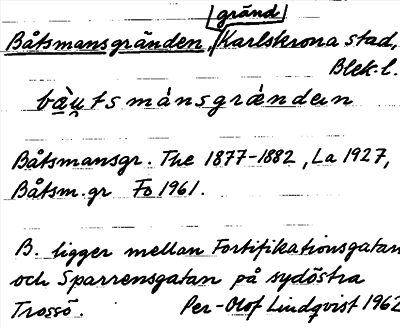 gränd
Båtsmansgränden, Karlskrona stad,
Blek. l.
bà̀u̯tsmánsgrǽndan
Båtsmansgr. The 1877-1882, La 1927,
Båtsm.gr Fo 1961.
B. ligger mellan Fortifikationsgatan
och Sparrensgatan på sydöstra
Trossö. Per-Olof Lindqvist 1962